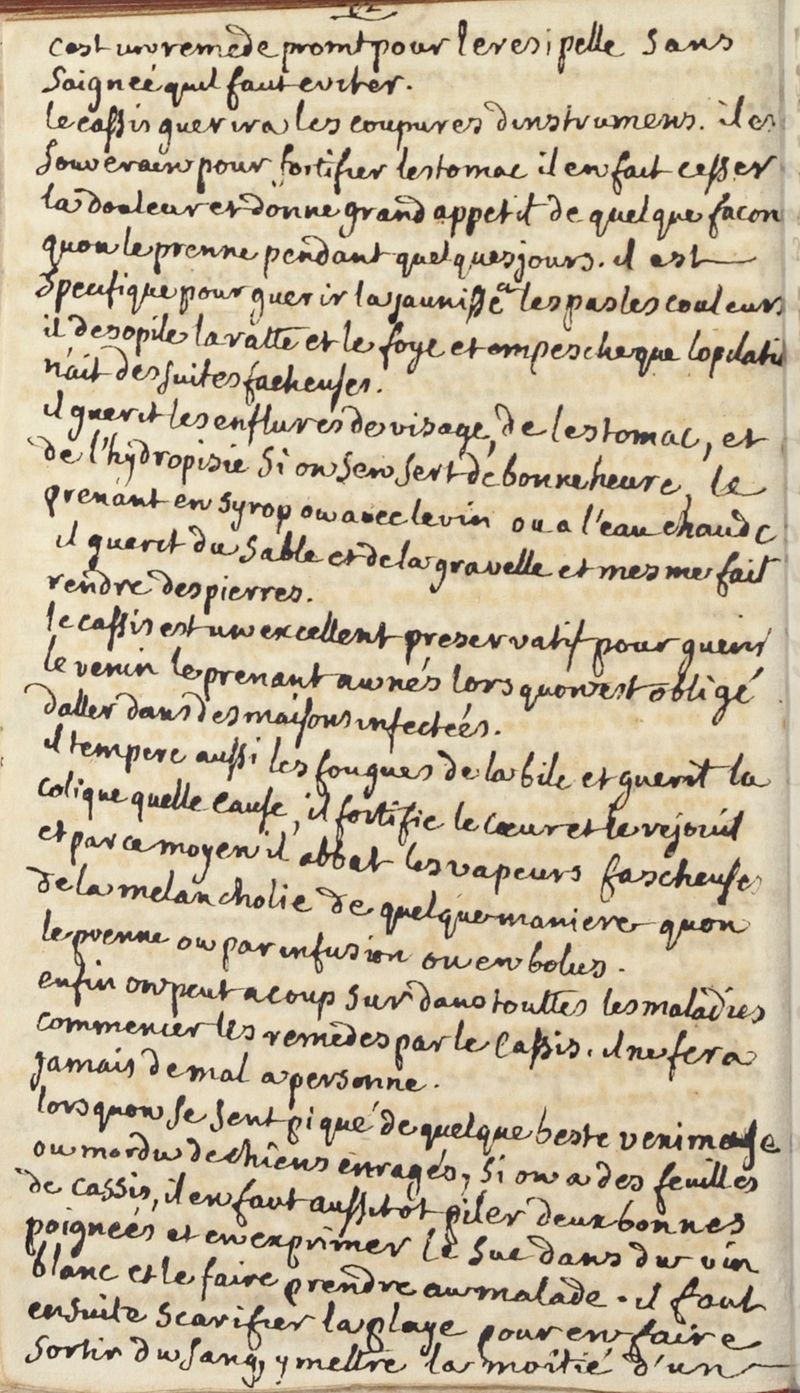 cest un remede promt pour leresipelle sans
saigneé quil faut eviter.
le cassis guerira les coupures dinstrumens. il es
souverain pour fortifier lestomac il en fait cesser
la douleur et donne grand appetit de quelque facon
quon le prenne pendant quelques jours. il est
specifique pour guerir la jaunisse les pasles couleurs
il desopile la ratte et le foye et empesche que lopilati
n'ait des suites facheuses.
il guerit les enflures de visage, de lestomac, et
de l'hydropisie si on sen sert de bonne heure, le
prenant en syrop ou avec le vin ou a l'eau chaude
il guerit du sable et de la gravelle et mesme fait
rendre des pierres.
le cassis est un excellent preservatif pour guerir
le venin le prenant au nés lors quon est obligé
daller dans des maisons infecteés.
il tempere aussi les fougues de la bile et guerit la
colique quelle cause, il fortifie le cœur et le rejouit
et par ce moyen il abbat les vapeurs fascheuses
de la melancholie de quelque maniere quon
le prenne ou par infusion ou en bolus.
enfin on peut a coup sur dans touttes les maladies
commencer les remedes par le cassis. il ne fera
jamais de mal a personne.
lors quon se sent piqué de quelque beste venimeuse
ou mordu de chiens enragés, si on a des feuilles
de cassis, il en faut aussitot piler deux bonnes
poigneés et en exprimer le suc dans du vin
blanc et le faire prendre au malade. il faut
ensuite scarifier la playe pour en faire
sortir du sang, y mettre la moitié d'un